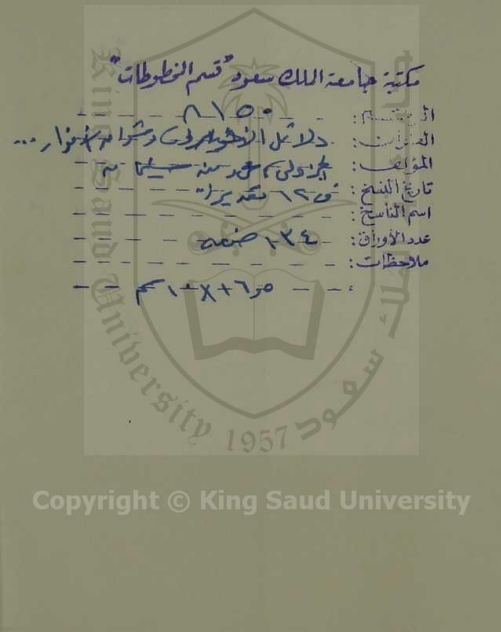 مكتبة جامعة الملك سعود "قسم المخطوطات"
الرقم: ٨١٥٠
العنوان: دلائل الخيرات وشوارق الأنوار...
المؤلف: الجزولي، محمد بن سليمان
تاريخ النسخ: ق ١٢ تقديرا
اسم الناسخ:
عدد الأوراق: ١٣٤
ملاحظات:
سم
King Saud University
1957
الملك سعود
Copyright © King Saud University